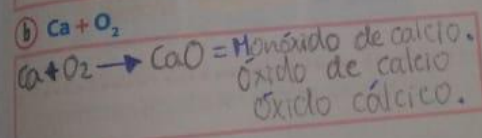 b Ca + O₂
Ca + O₂ → CaO = Monóxido de calcio.
Óxido de calcio
óxido cálcico.